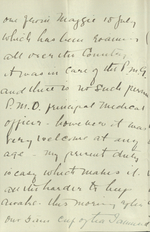 one from Maggie 18 July
which has been round
all over the Country
it was in care of the P.M.G.
and there is no such person
P.M.O. principal Medical
officer - however it was
very welcome at any
age - my present duty
is easy which makes it
all the harder to keep
awake - this morning after
our cup of tea